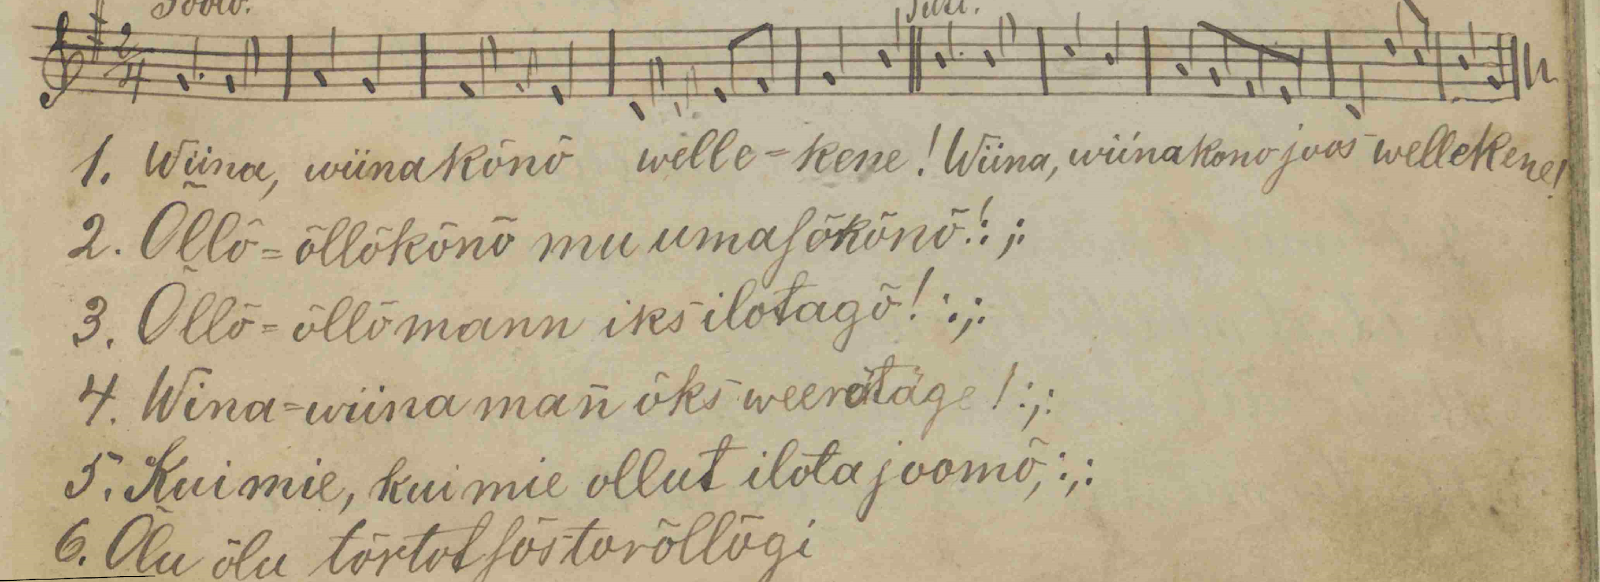 1. Wiina, wiinakõnõ welle=kene! Wiina, wiinakono joos wellekene!
2. Õllõ=õllõkõnõ mu umasõkõnõ! :,:
3. Õllõ=õllõmann iks ilotagõ! :,:
4. Wina=wiina mañ õks weerätäge! :,:
5. Kui mie, kui mie ollut ilota joomõ, :,:
6. Õlu õlu